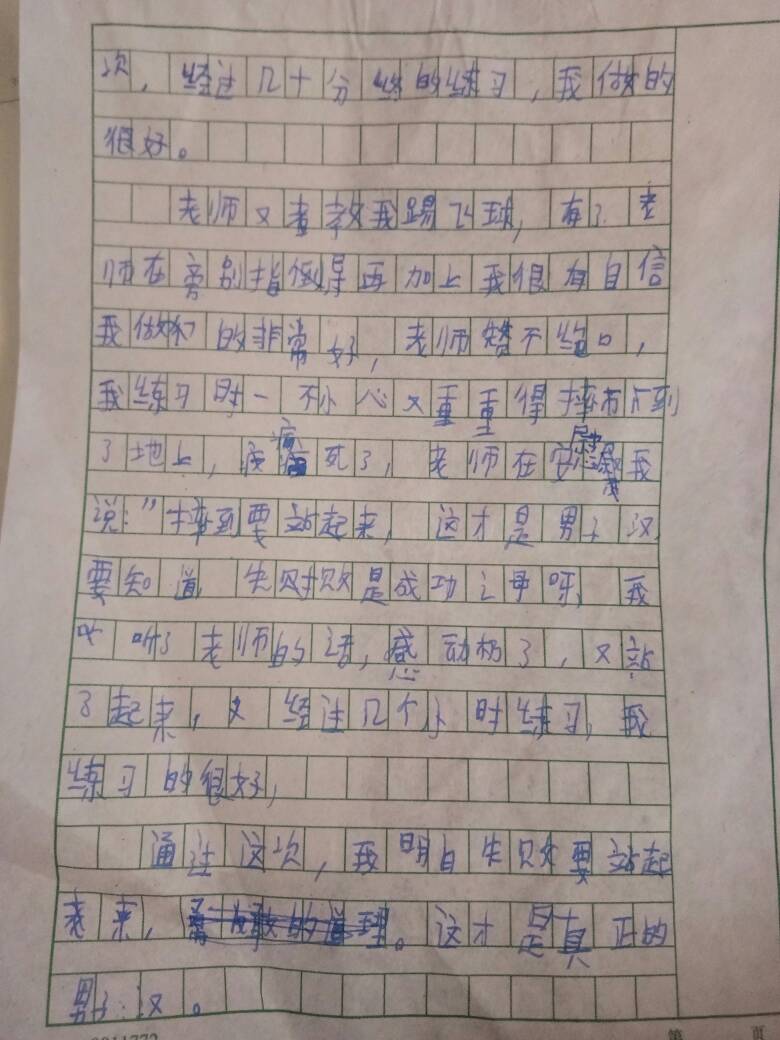 次，经过几十分钟的练习，我做的
很好。
老师又着教我踢飞球，有了老
师在旁别指倒导再加上我很有自信
我做的非常好，老师赞不绝口，
我练习时一不小心又重重得摔到
了地上，疼痛死了，老师在安慰我
说："摔到要站起来，这才是男子汉
要知道失败是成功之母呀，我
听了老师的话，感动极了，又站
了起来，又经过几个小时练习，我
练习的很好，
通过这次，我明白失败要站起
来，这才是真正的
男子汉。
第 页